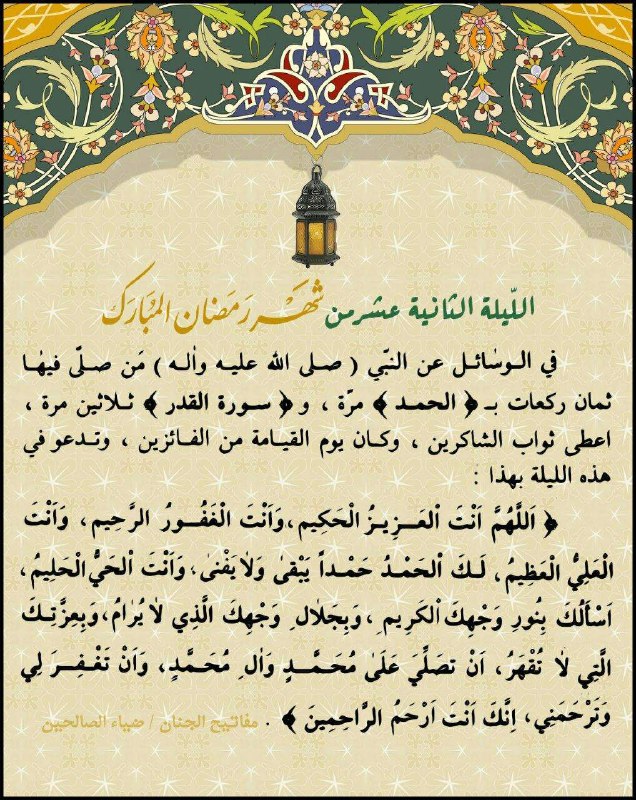 اللّيلة الثانية عشر من شهر رمضان المبارك
في الوسائل عن النبّي ( صلى الله عليه واله ) مَن صلّى فيها
ثمان ركعات بـ ﴿ الحمد ﴾ مرّة ، و ﴿ سورة القدر ﴾ ثلاثين مرة ،
اعطى ثواب الشاكرين ، وكان يوم القيامة من الفائزين ، وتدعو في
هذه الليلة بهذا :
﴿ اَللَّهُمَّ اَنْتَ اْلعَزِيزُ الْحَكِيم ،وَاَنْتَ الْغَفُورُ الرَّحِيم، وَاَنْتَ
الْعَلِيُّ الْعَظِيمُ، لَكَ اْلحَمْدُ حَمْداً يَبْقىٰ وَلاٰ يَفْنىٰ، وَاَنْتَ اْلحَيُّ الْحَلِيمُ،
اَسْأَلُكَ بِنُورِ وَجْهِكَ اْلكَرِيمِ ،وَبِجَلاٰلِ وَجْهِكَ الَّذِي لاٰ يُرٰامُ،وَبِعِزَّتِكَ
الَّتِي لاٰ تُقْهَرُ، اَنْ تصَلِّيَ عَلَىٰ مُحَمَّدٍ وَاٰلِ مُحَمَّدٍ، وَاَنْ تَغْفِرَ لِي
وَتَرْحَمَنِي، اِنَّكَ اَنْتَ اَرْحَمُ الرَّاحِمِينَ ﴾ . مفاتيح الجنان / ضياء الصالحين